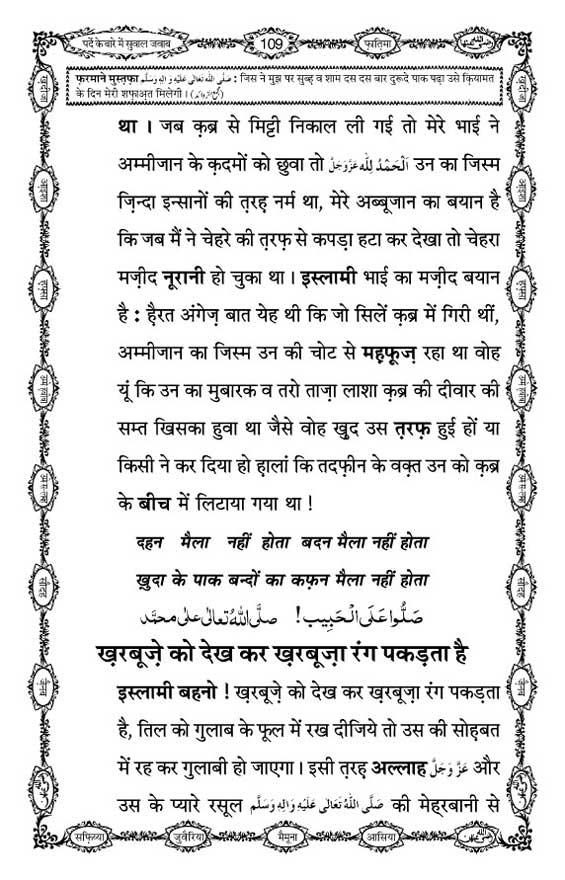 पर्दे के बारे में सुवाल जवाब
109
फ़ातिमा
फ़रमाने मुस्तफ़ा صَلَّی اللہُ تَعَالٰی عَلَیْہِ وَاٰلِہٖ وَسَلَّم : जिस ने मुझ पर सुब्ह व शाम दस दस बार दुरूदे पाक पढ़ा उसे क़ियामत
के दिन मेरी शफ़ाअ़त मिलेगी ।
था । जब क़ब्र से मिट्टी निकाल ली गई तो मेरे भाई ने
अम्मीजान के क़दमों को छुवा तो اَلْحَمْدُ لِلّٰہ عَزَّوَجَلَّ उन का जिस्म
ज़िन्दा इन्सानों की त़रह़ नर्म था, मेरे अब्बूजान का बयान है
कि जब मैं ने चेहरे की त़रफ़ से कपड़ा हटा कर देखा तो चेहरा
मज़ीद नूरानी हो चुका था । इस्लामी भाई का मज़ीद बयान
है : ह़ैरत अंगेज़ बात येह थी कि जो सिलें क़ब्र में गिरी थीं,
अम्मीजान का जिस्म उन की चोट से मह़फ़ूज़ रहा था वोह
यूं कि उन का मुबारक व तरो ताज़ा लाशा क़ब्र की दीवार की
सम्त खिसका हुवा था जैसे वोह खुद उस त़रफ़ हुई हों या
किसी ने कर दिया हो ह़ालां कि तदफ़ीन के वक़्त उन को क़ब्र
के बीच में लिटाया गया था !
दहन मैला नहीं होता बदन मैला नहीं होता
ख़ुदा के पाक बन्दों का कफ़न मैला नहीं होता
صَلُّوا عَلَی الْحَبِیب! صلَّی اللّٰہُ تعالٰی علٰی محمَّد
ख़रबूज़े को देख कर ख़रबूज़ा रंग पकड़ता है
इस्लामी बहनो ! ख़रबूज़े को देख कर ख़रबूज़ा रंग पकड़ता
है, तिल को गुलाब के फूल में रख दीजिये तो उस की सोह़बत
में रह कर गुलाबी हो जाएगा । इसी त़रह़ अल्लाह عَزَّوَجَلَّ और
उस के प्यारे रसूल صَلَّی اللہُ تَعَالٰی عَلَیْہِ وَاٰلِہٖ وَسَلَّم की मेहरबानी से
सफ़िय्या
जुवैरिया
मैमूना
आसिया